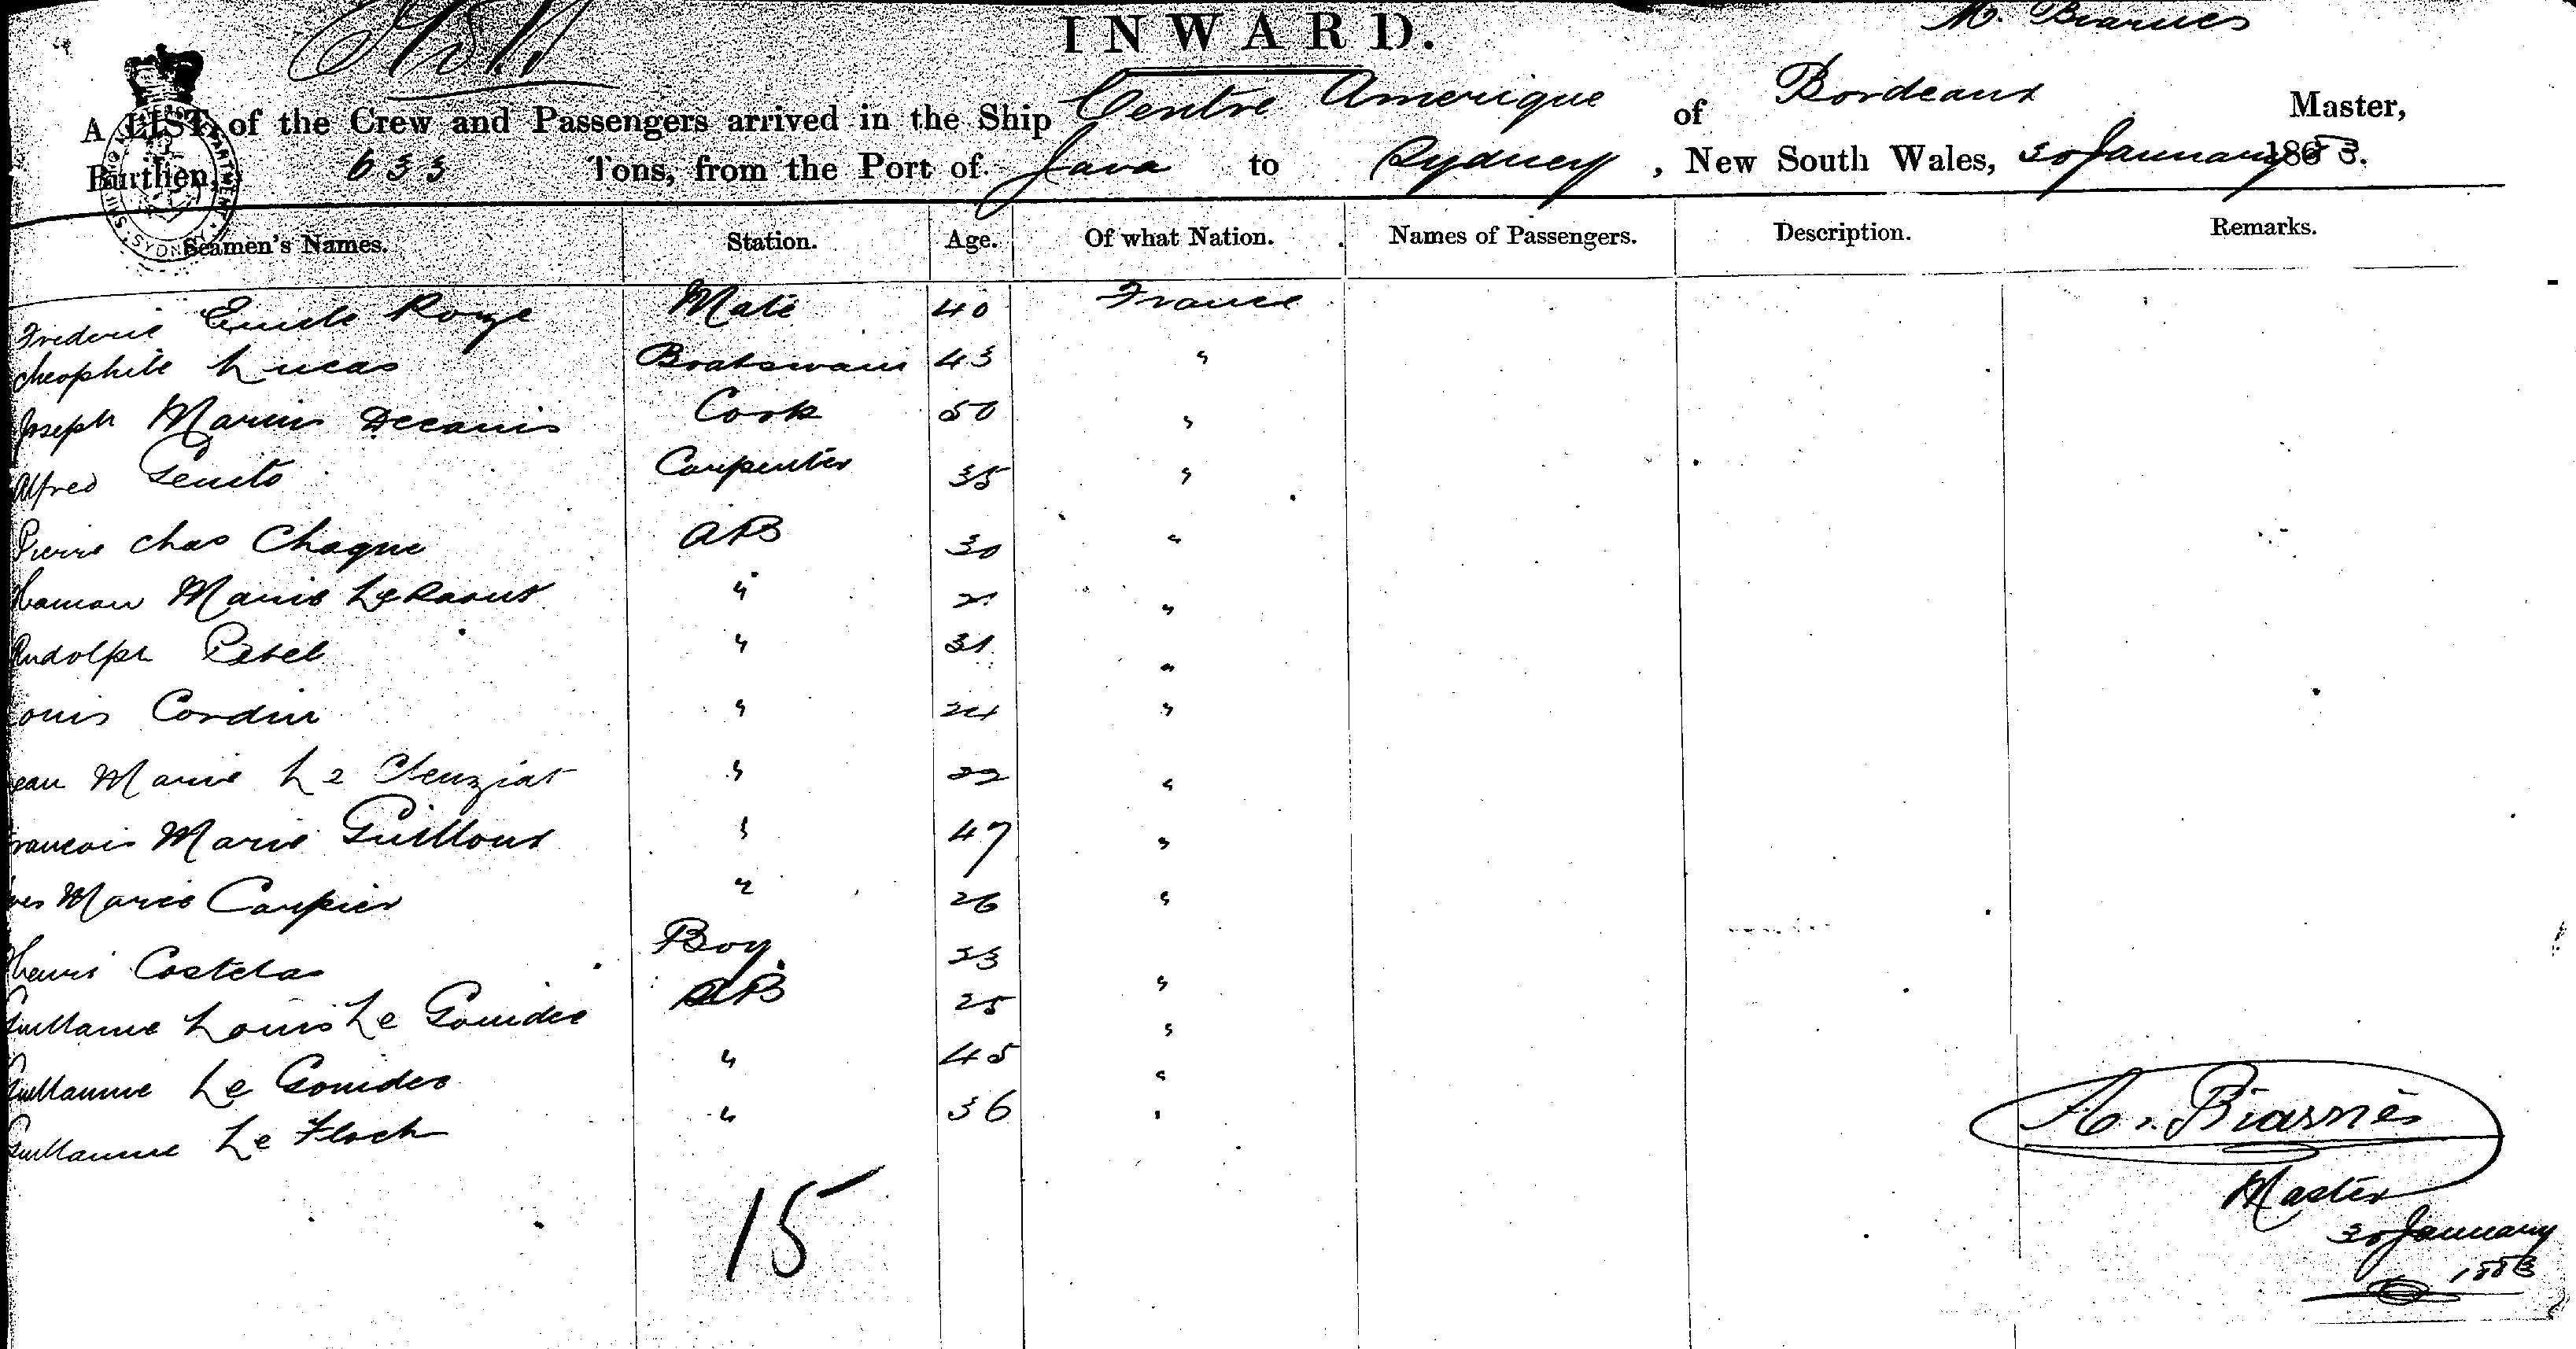 INWARD.
A. Biarnes
A LIST of the Crew and Passengers arrived in the Ship Centre Amerique of Bordeaux Master,
Burthen, 633 Tons, from the Port of Java to Sydney, New South Wales, 30 January 1883.
Seamen's Names. Station. Age. Of what Nation. Names of Passengers. Description. Remarks.
Frederic Emile Rouge Mate 40 France
Theophile Lucas Boatswain 43 "
Joseph Marius Decanis Cook 50 "
Alfred Carpenter 35 "
Pierre Chas Chaque AB 30 "
Hamon Marie LeRaout " 21 "
Rudolph " 31 "
Louis Cordin " 24 "
Jean Marie Le Cleuziat " 22 "
Francois Marie Guilloux " 47 "
Yves Marie Carpier " 26 "
Henri Costelas Boy 23 "
Guillaume Louis Le Gouidec AB 25 "
Guillaume Le Gouidec " 45 "
Guillaume Le Floch " 36 "
15
A. Biarnès
Master
30 January
1883